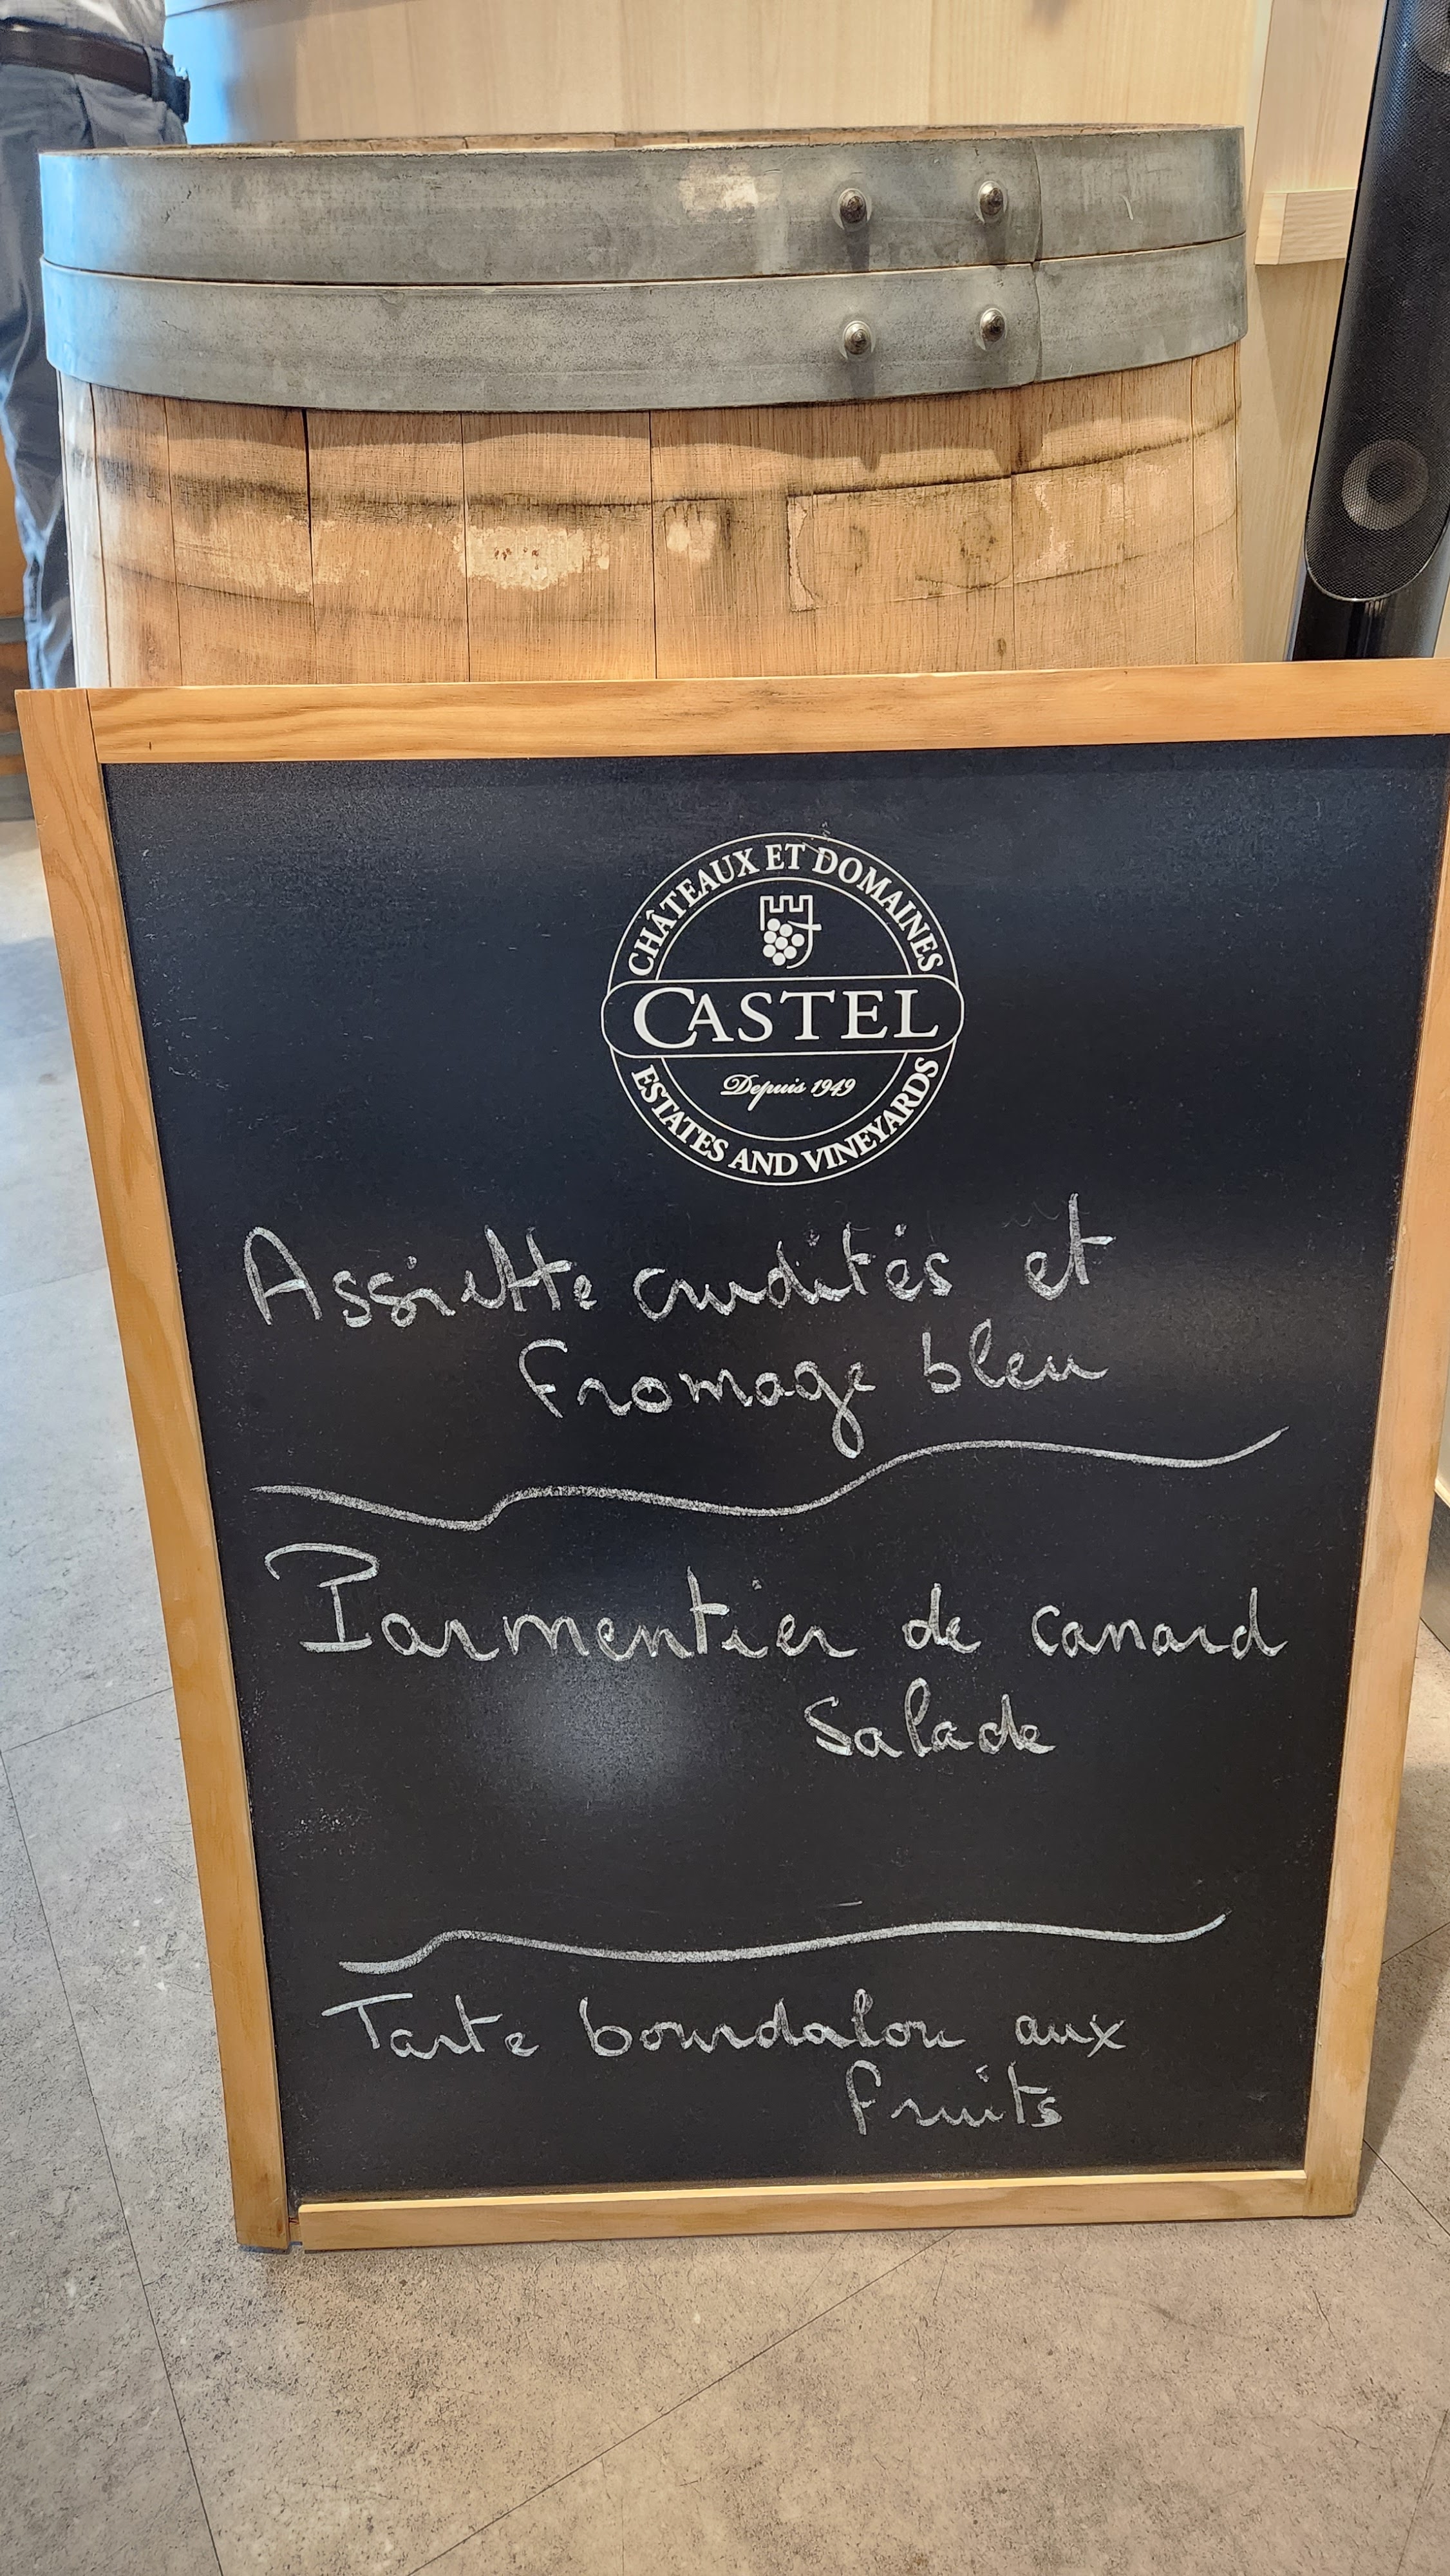 CHÂTEAUX ET DOMAINES
CASTEL
Depuis 1949
ESTATES AND VINEYARDS
Assiette crudités et
fromage bleu
Parmentier de canard
Salade
Tarte bourdalou aux
fruits